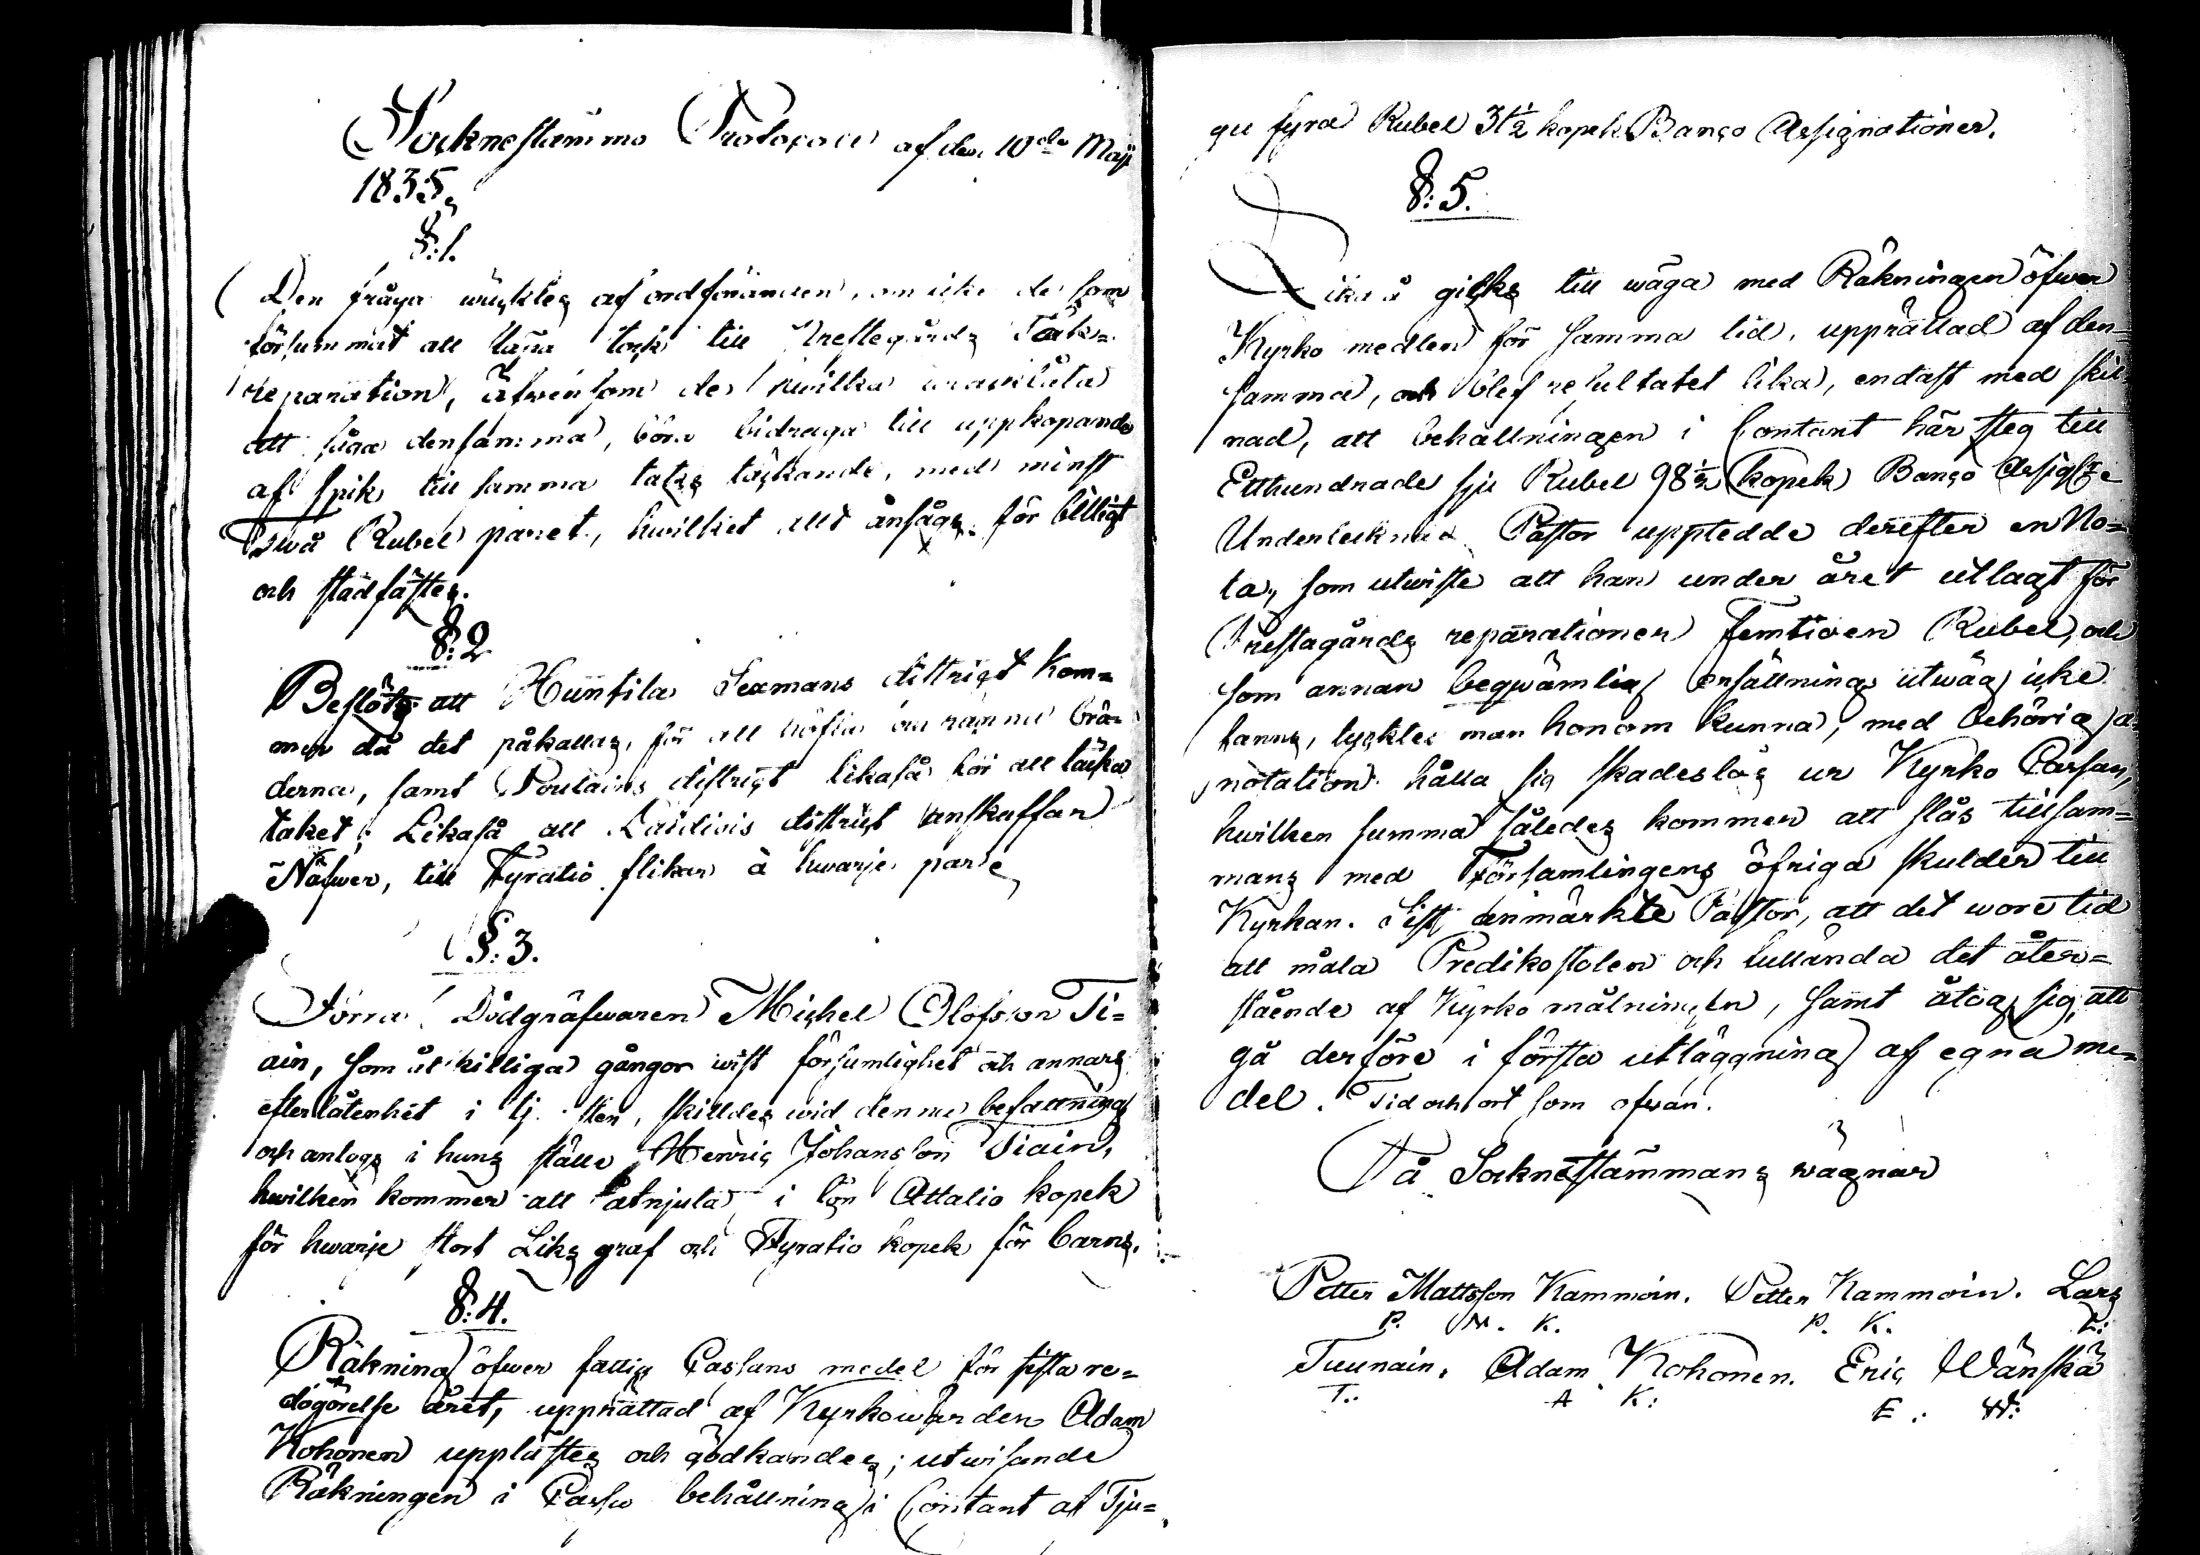 Socknestämmo Protocoll af den 10de Maji
1835.
§:1.
Den fråga wäcktes af ordföranden, om icke de som
försummat att täga torf till Prestegårds Tak=
reparation, äfwensom de, hwilka uraktlåta
att såga densamma, böra bidraga till uppköpande
af spik till samma taks täckande, med minst
Twå Rubel paret, hwilket allt ansågs för billigt
och stadfästes.
§:2
Beslöts att Huntila Sexmans district kom=
mer då det påkallas, för att höfla och rämna brä=
derna, samt Poutains district likaså för att täcka
taket; Likaså att Laidiois district anskaffar
Näfwer, till Fyratio flikar à hwarje par
§:3.
Förra Dödgräfwaren Michel Olofsson Ti=
ain, som åtskilliga gångor wist försumlighet och annars
efterlåtenhet i tjensten, skilldes wid denna befattning
och antogs i hans ställe Henric Johansson Tiain,
hwilken kommer att åtnjuta i lön Attatio kopek
för hwarje stort Liks graf och Fyratio kopek för barns.
§:4.
Räkning öfwer fattig Cassans medel för sista re=
dogörelse året, upprättad af Kyrkowärden Adam
Kohonen upplästes och godkändes; utwisande
Räkningen i Cassa behållning i Contant af Tju=
gu fyra Rubel 31½ kopek Banco Assignationer.
§:5.
Lika så gicks till wäga med Räkningen öfwer
Kyrko medlen för samma tid, upprättad af den=
samma, och blef resultatet lika, endast med skil=
nad, att behållningen i Contant här steg till
Etthundrade sju Rubel 98½ kopek Banco Assigt:e
Undertecknad Pastor upptedde derefter en No=
ta, som utwiste att han under året utlagt för
Prestagårds reparationer Femtioen Rubel, och
som annan beqwämlig ersättnings utwäg icke
fanns, tycktes man honom kunna, med behörig a=
notation hålla sig skadeslös ur Kyrko Cassan,
hwilken summa således kommer att slås tillsam=
mans med Församlingens öfriga skulder till
Kyrkan. Sist anmärkte Pastor, att det wore tid
att måla Predikostolen och fullända det åter=
stående af Kyrko målningen, samt åtog sig, att
gå derföre i första utläggning af egna me=
del. Tid och ort som ofwan.
På Socknestämmans wägnar
Petter Mattsson Kammoin. Petter Kammoin. Lars
P. M. K. P. K. L:
Tuunain. Adam Kohonen. Eric Wänskä
T: A K: E: W: